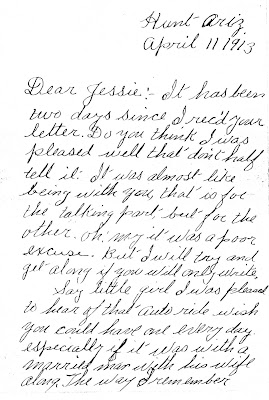 Hunt Ariz
April 11 1913
Dear Jessie:- It has been
two days since I rec'd your
letter. Do you think I was
pleased well that don't half
tell it. It was almost like
being with you, that is for
the talking part but for the
other. oh, my it was a poor
excuse. But I will try and
get along if you will only write
Say little girl I was pleased
to hear of that auto ride wish
you could have one every day.
especially if it was with a
married man with his wife
along. The way I remember